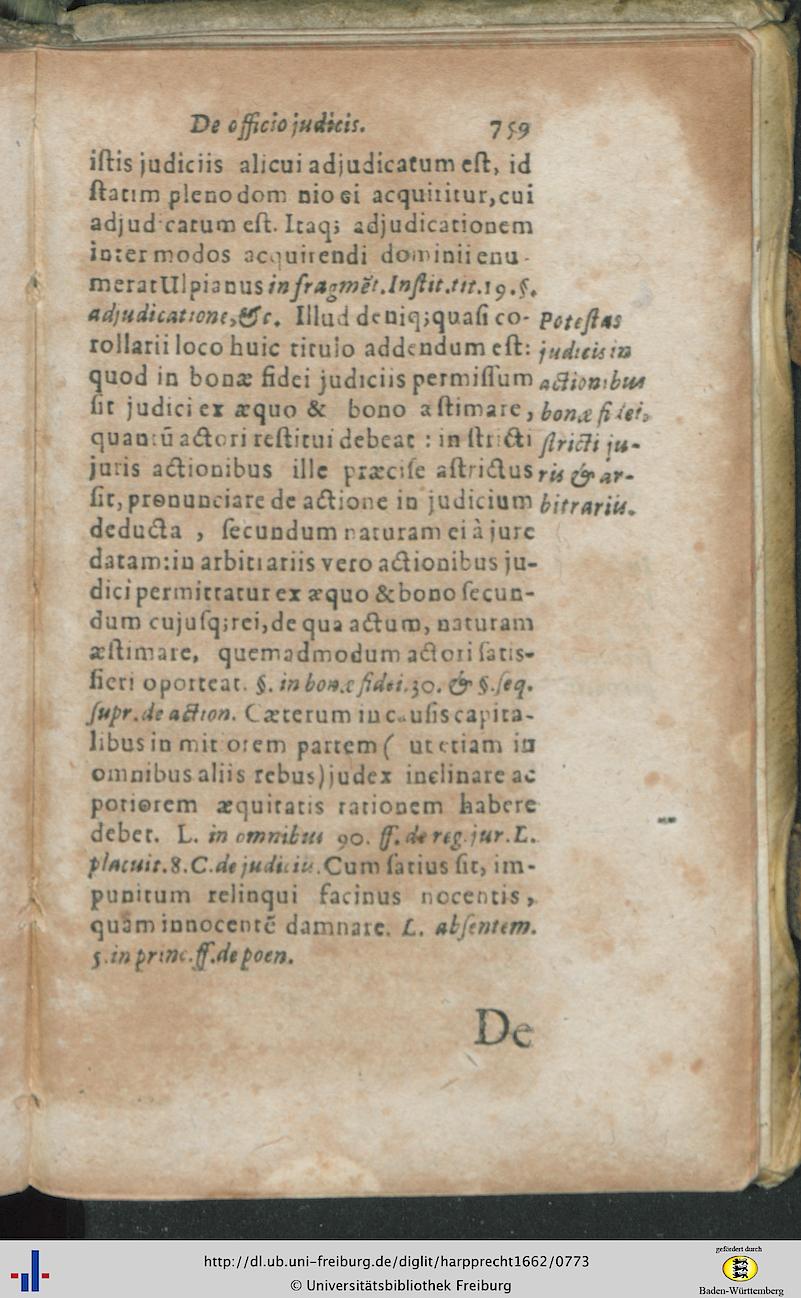 De officio judicis. 759
istis judiciis alicui adjudicatum est, id
statim pleno dominio ei acquiritur, cui
adjudicatum est. Itaq; adjudicationem
inter modos acquirendi dominii enu-
merat Ulpianus in fragmēt. Instit. tit. 19. §.
adjudicatione, &c. Illud deniq; quasi co-
rollarii loco huic titulo addendum est:
quod in bonæ fidei judiciis permissum
sit judici ex æquo & bono æstimare,
quantū actori restitui debeat : in stricti
juris actionibus ille præcise astrictus
sit, pronunciare de actione in judicium
deducta , secundum naturam ei à jure
datam: in arbitrariis vero actionibus ju-
dici permittatur ex æquo & bono secun-
dum cujusq; rei, de qua actum, naturam
æstimare, quemadmodum actori satis-
fieri oporteat. §. in bonæ fidei. 30. & §. seq.
supr. de action. Cæterum in causis capita-
libus in mitiorem partem ( ut etiam in
omnibus aliis rebus) judex inclinare ac
potiorem æquitatis rationem habere
debet. L. in omnibus 90. ff. de reg. jur. L.
placuit. 8. C. de judiciis. Cum satius sit, im-
punitum relinqui facinus nocentis,
quàm innocentē damnare. L. absentem.
5. in princ. ff. de poen.
De
Potestas
judicis in
actionibus
bonæ fidei,
stricti ju-
ris & ar-
bitrariis.
http://dl.ub.uni-freiburg.de/diglit/harpprecht1662/0773
© Universitätsbibliothek Freiburg
gefördert durch
Baden-Württemberg